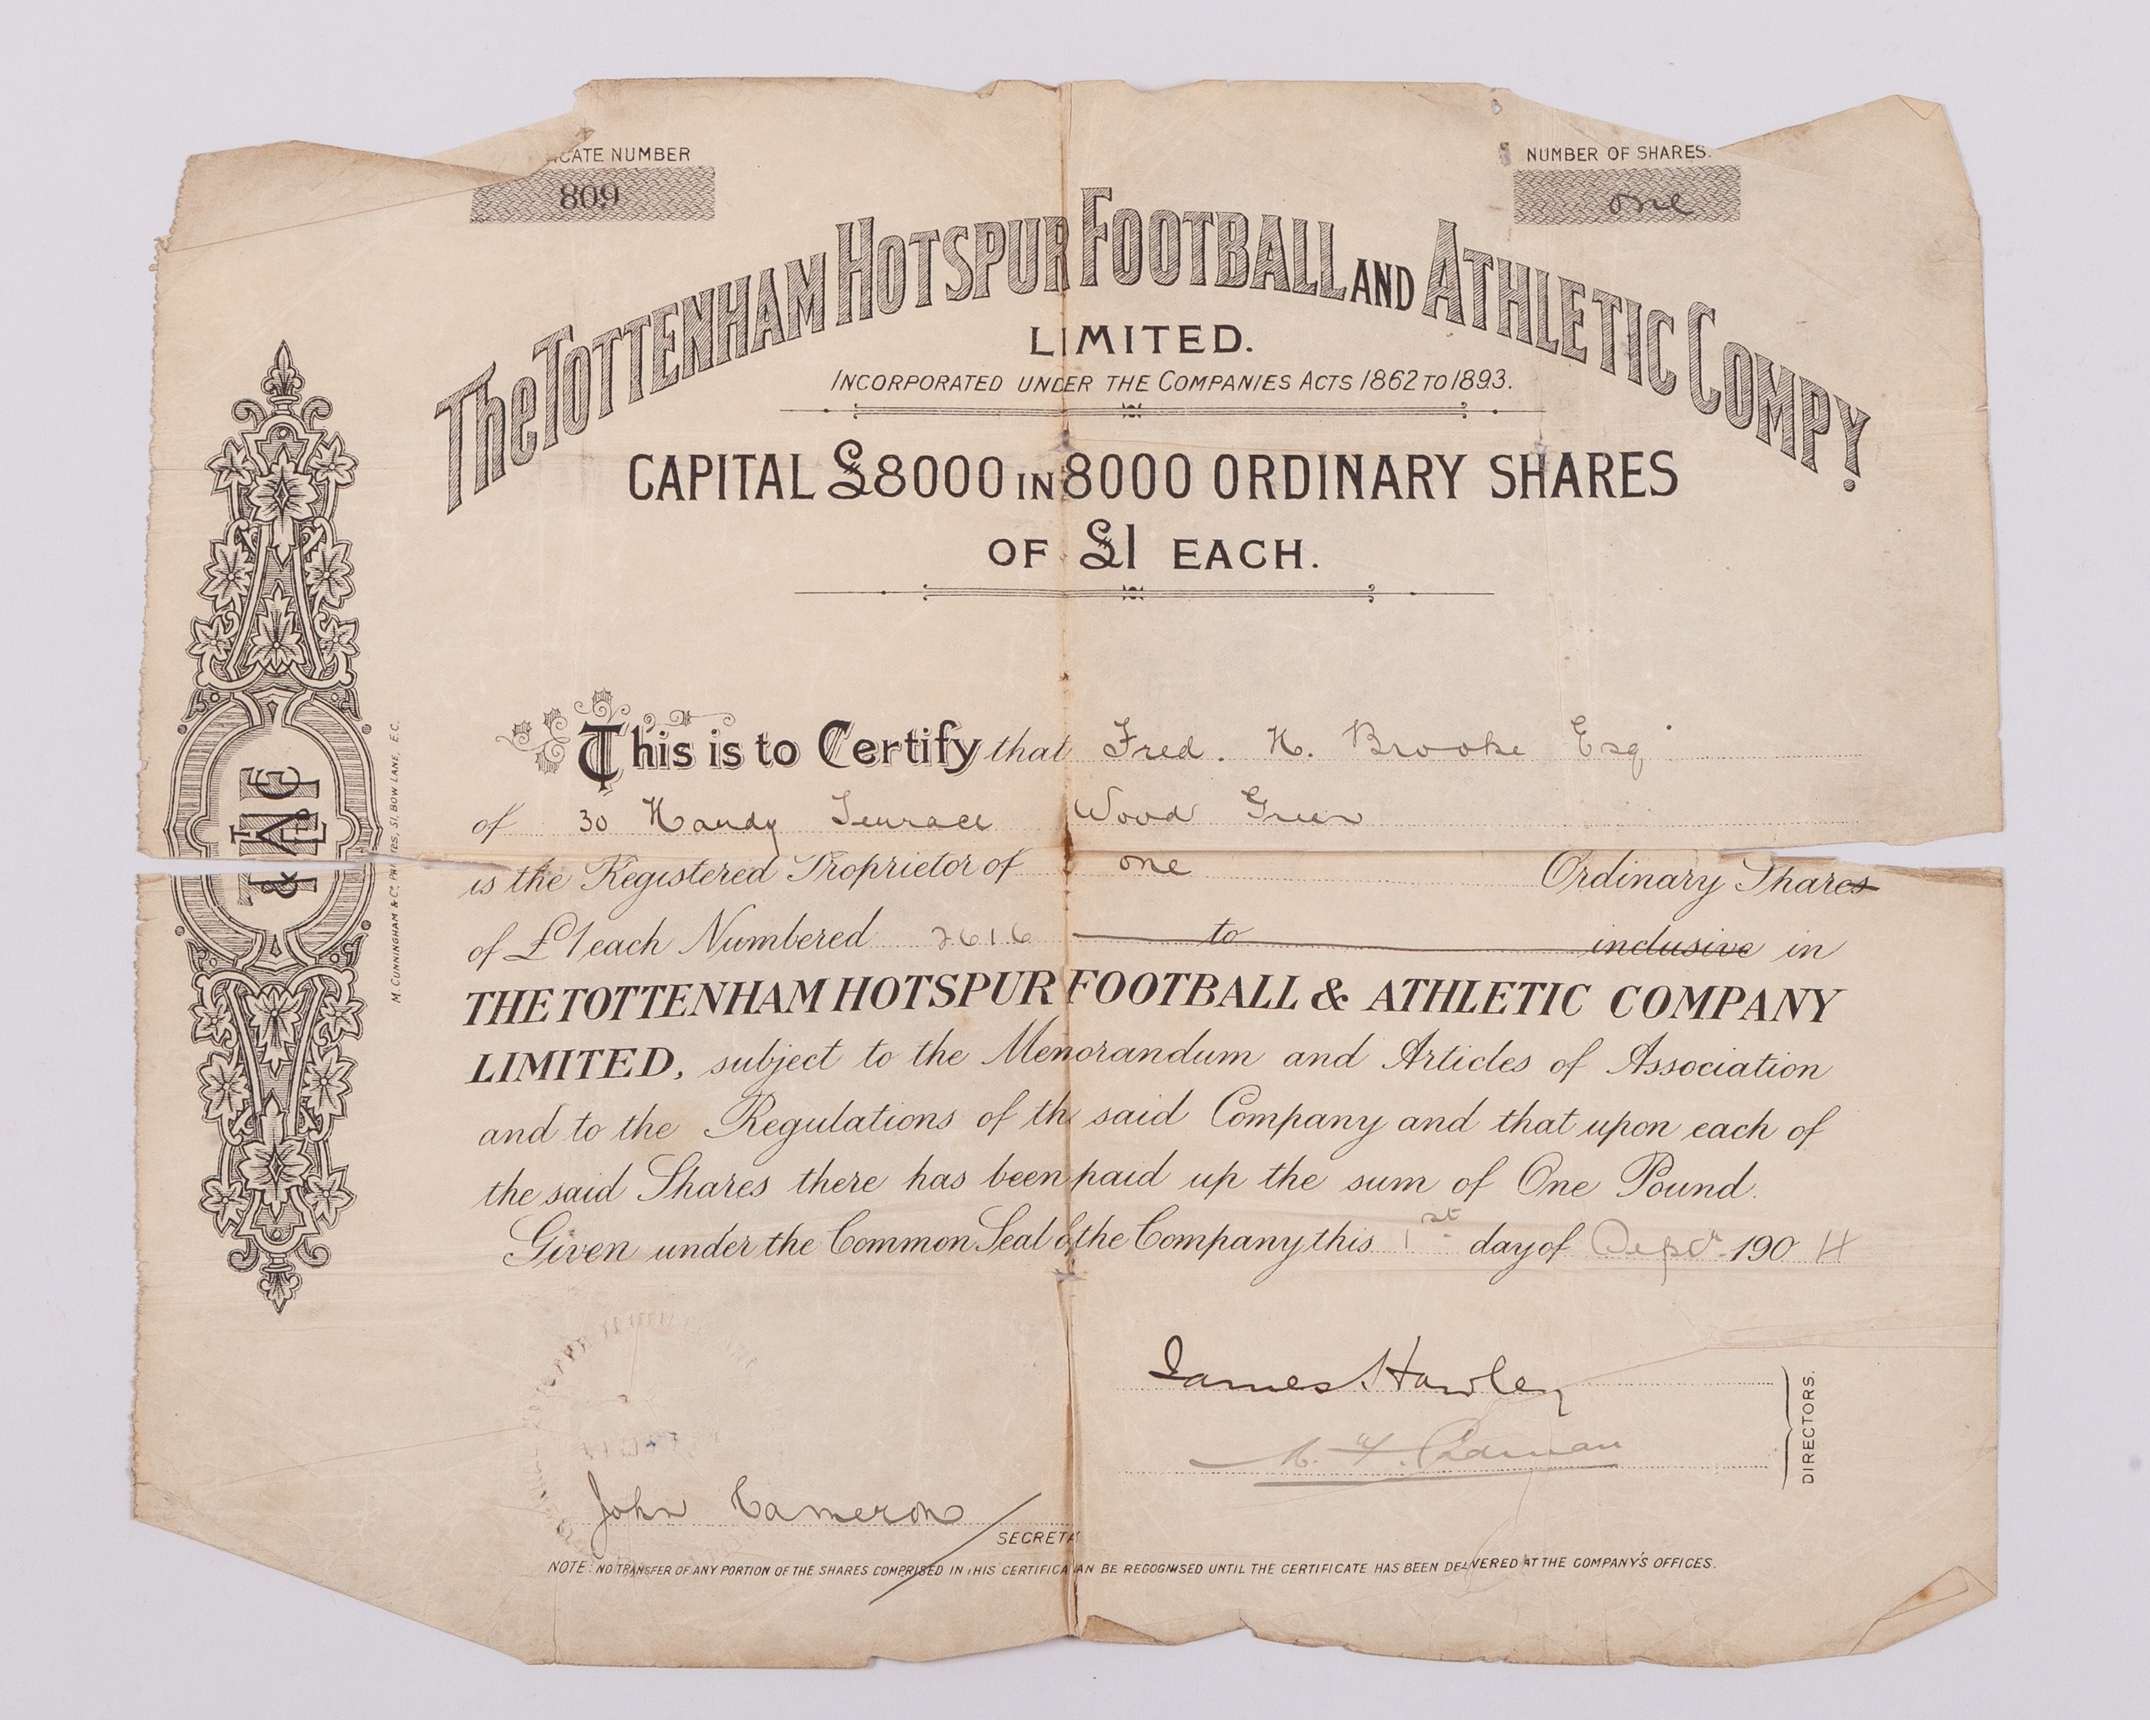 CATE NUMBER
809
NUMBER OF SHARES.
one
The TOTTENHAM HOTSPUR FOOTBALL AND ATHLETIC COMPY.
LIMITED.
INCORPORATED UNDER THE COMPANIES ACTS 1862 TO 1893.
CAPITAL £8000 IN 8000 ORDINARY SHARES
OF £1 EACH.
This is to Certify that Fred. H. Brooke Esq
of 30 Handy Terrace Wood Green
is the Registered Proprietor of one Ordinary Shares
of £1 each Numbered 2616 to inclusive in
THE TOTTENHAM HOTSPUR FOOTBALL & ATHLETIC COMPANY
LIMITED, subject to the Memorandum and Articles of Association
and to the Regulations of the said Company and that upon each of
the said Shares there has been paid up the sum of One Pound.
Given under the Common Seal of the Company this 1st day of Sept 1904
James Hawley
DIRECTORS.
John Cameron
SECRETA
NOTE: NO TRANSFER OF ANY PORTION OF THE SHARES COMPRISED IN THIS CERTIFICA AN BE RECOGNISED UNTIL THE CERTIFICATE HAS BEEN DELIVERED AT THE COMPANY'S OFFICES.
M. CUNNINGHAM & CO. PRINTERS, 51. BOW LANE, E.C.